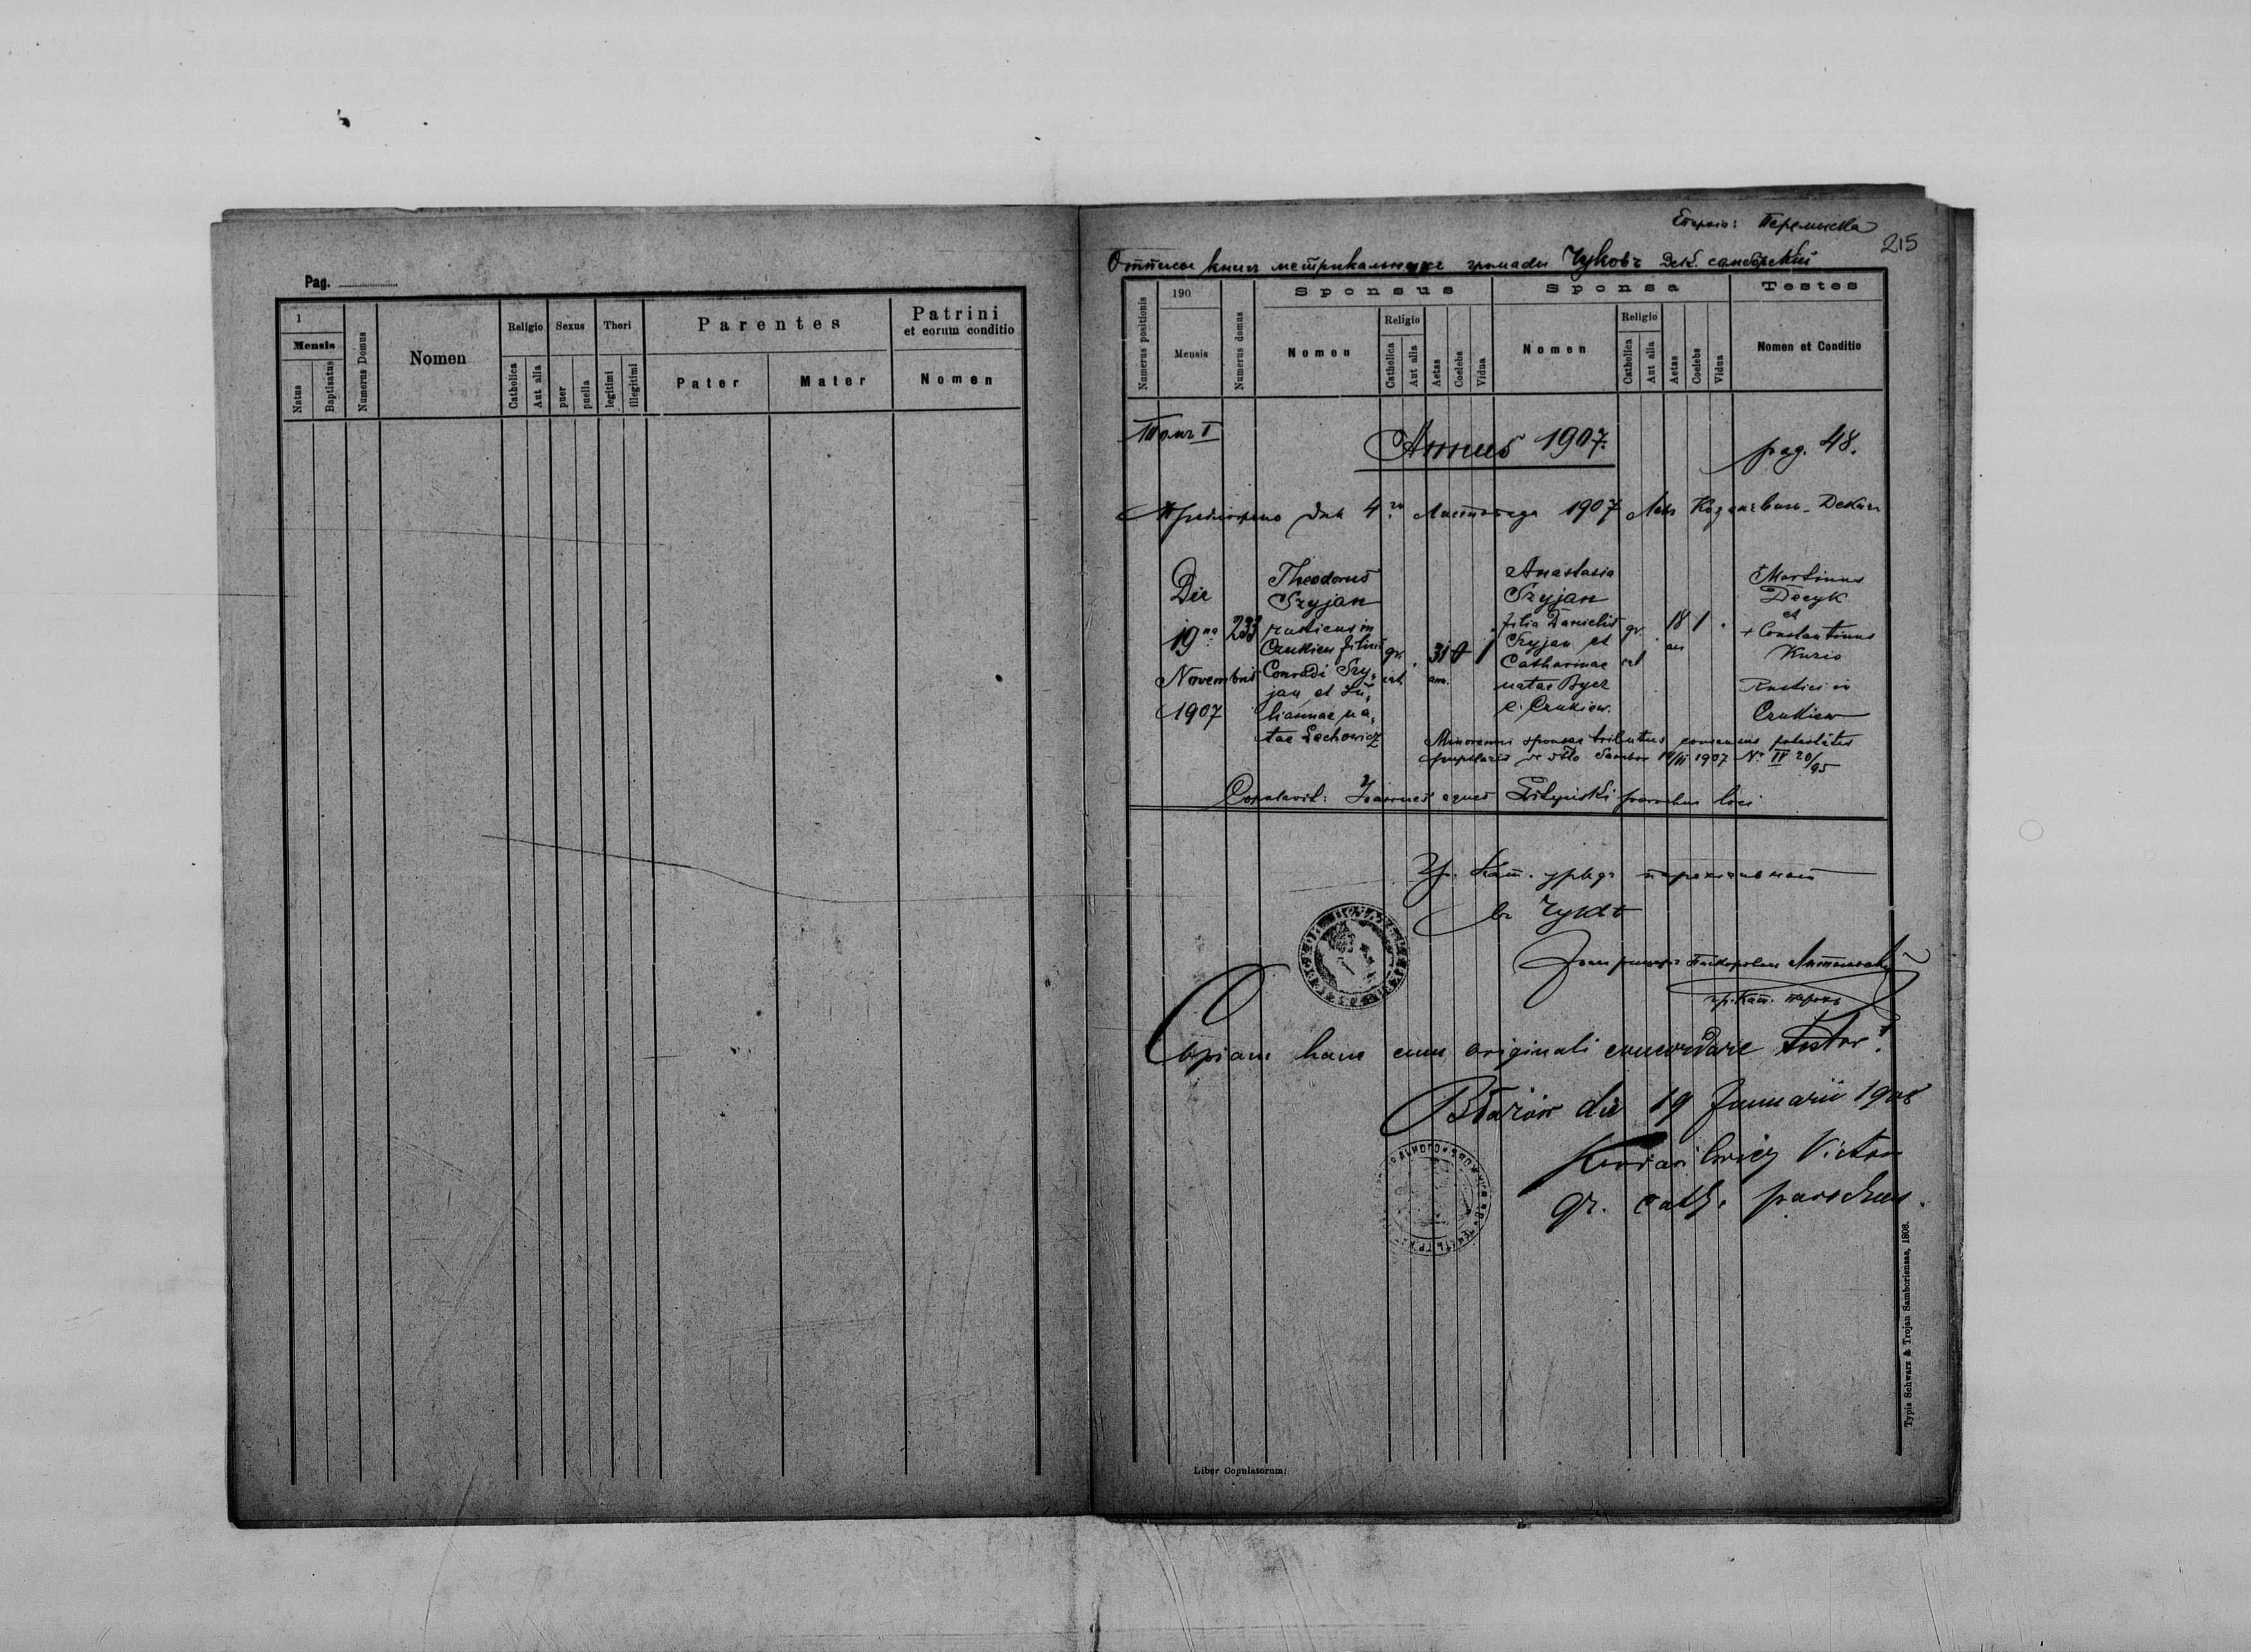 Pag.
1
Mensis
Natus
Baptisatus
Numerus Domus
Nomen
Religio
Catholica
Aut alia
Sexus
puer
puella
Thori
legitimi
illegitimi
Parentes
Pater
Mater
Patrini
et eorum conditio
Nomen
215
книгъ метрикальныхъ громады Чуковъ Дек. самборскій
Numerus positionis
190
Mensis
Numerus domus
Sponsus
Nomen
Religio
Catholica
Aut alia
Aetas
Coelebs
Vidua
Sponsa
Nomen
Religio
Catholica
Aut alia
Aetas
Coelebs
Vidua
Testes
Nomen et Conditio
Томъ I
Annus 1907.
pag. 48.
дня 4 1907
Die
19na
Novembris
1907
233
Theodorus
Szyjan
rusticus in
Czukiew filius
Conradi Szy-
jan et Ju-
liannae na-
tae Lechowicz
gr.
cat.
31
ann.
0
1
Anastasia
Szyjan
filia Danielis
Szyjan et
Catharinae
natae Bycz
e Czukiew.
gr.
cat
18
an
1
Martinus
Decyk
et
+ Constantinus
Kuzio
Rustici in
Czukiew
Minorennis sponsae tributus consensus potestatis
pupillaris de dtto Sambor 1907 Nr IV 20/95
Copulavit: Joannes eques parochus loci
Гр. кат. урядъ парохіяльный
въ
гр. кат. парохъ
Copiam hanc cum originali concordare testor!
Błażów die 19 Januarii 1908
Victor
gr. cath. parochus.
Typis Schwarz & Trojan Samboriensae, 1808.
Liber Copulatorum;